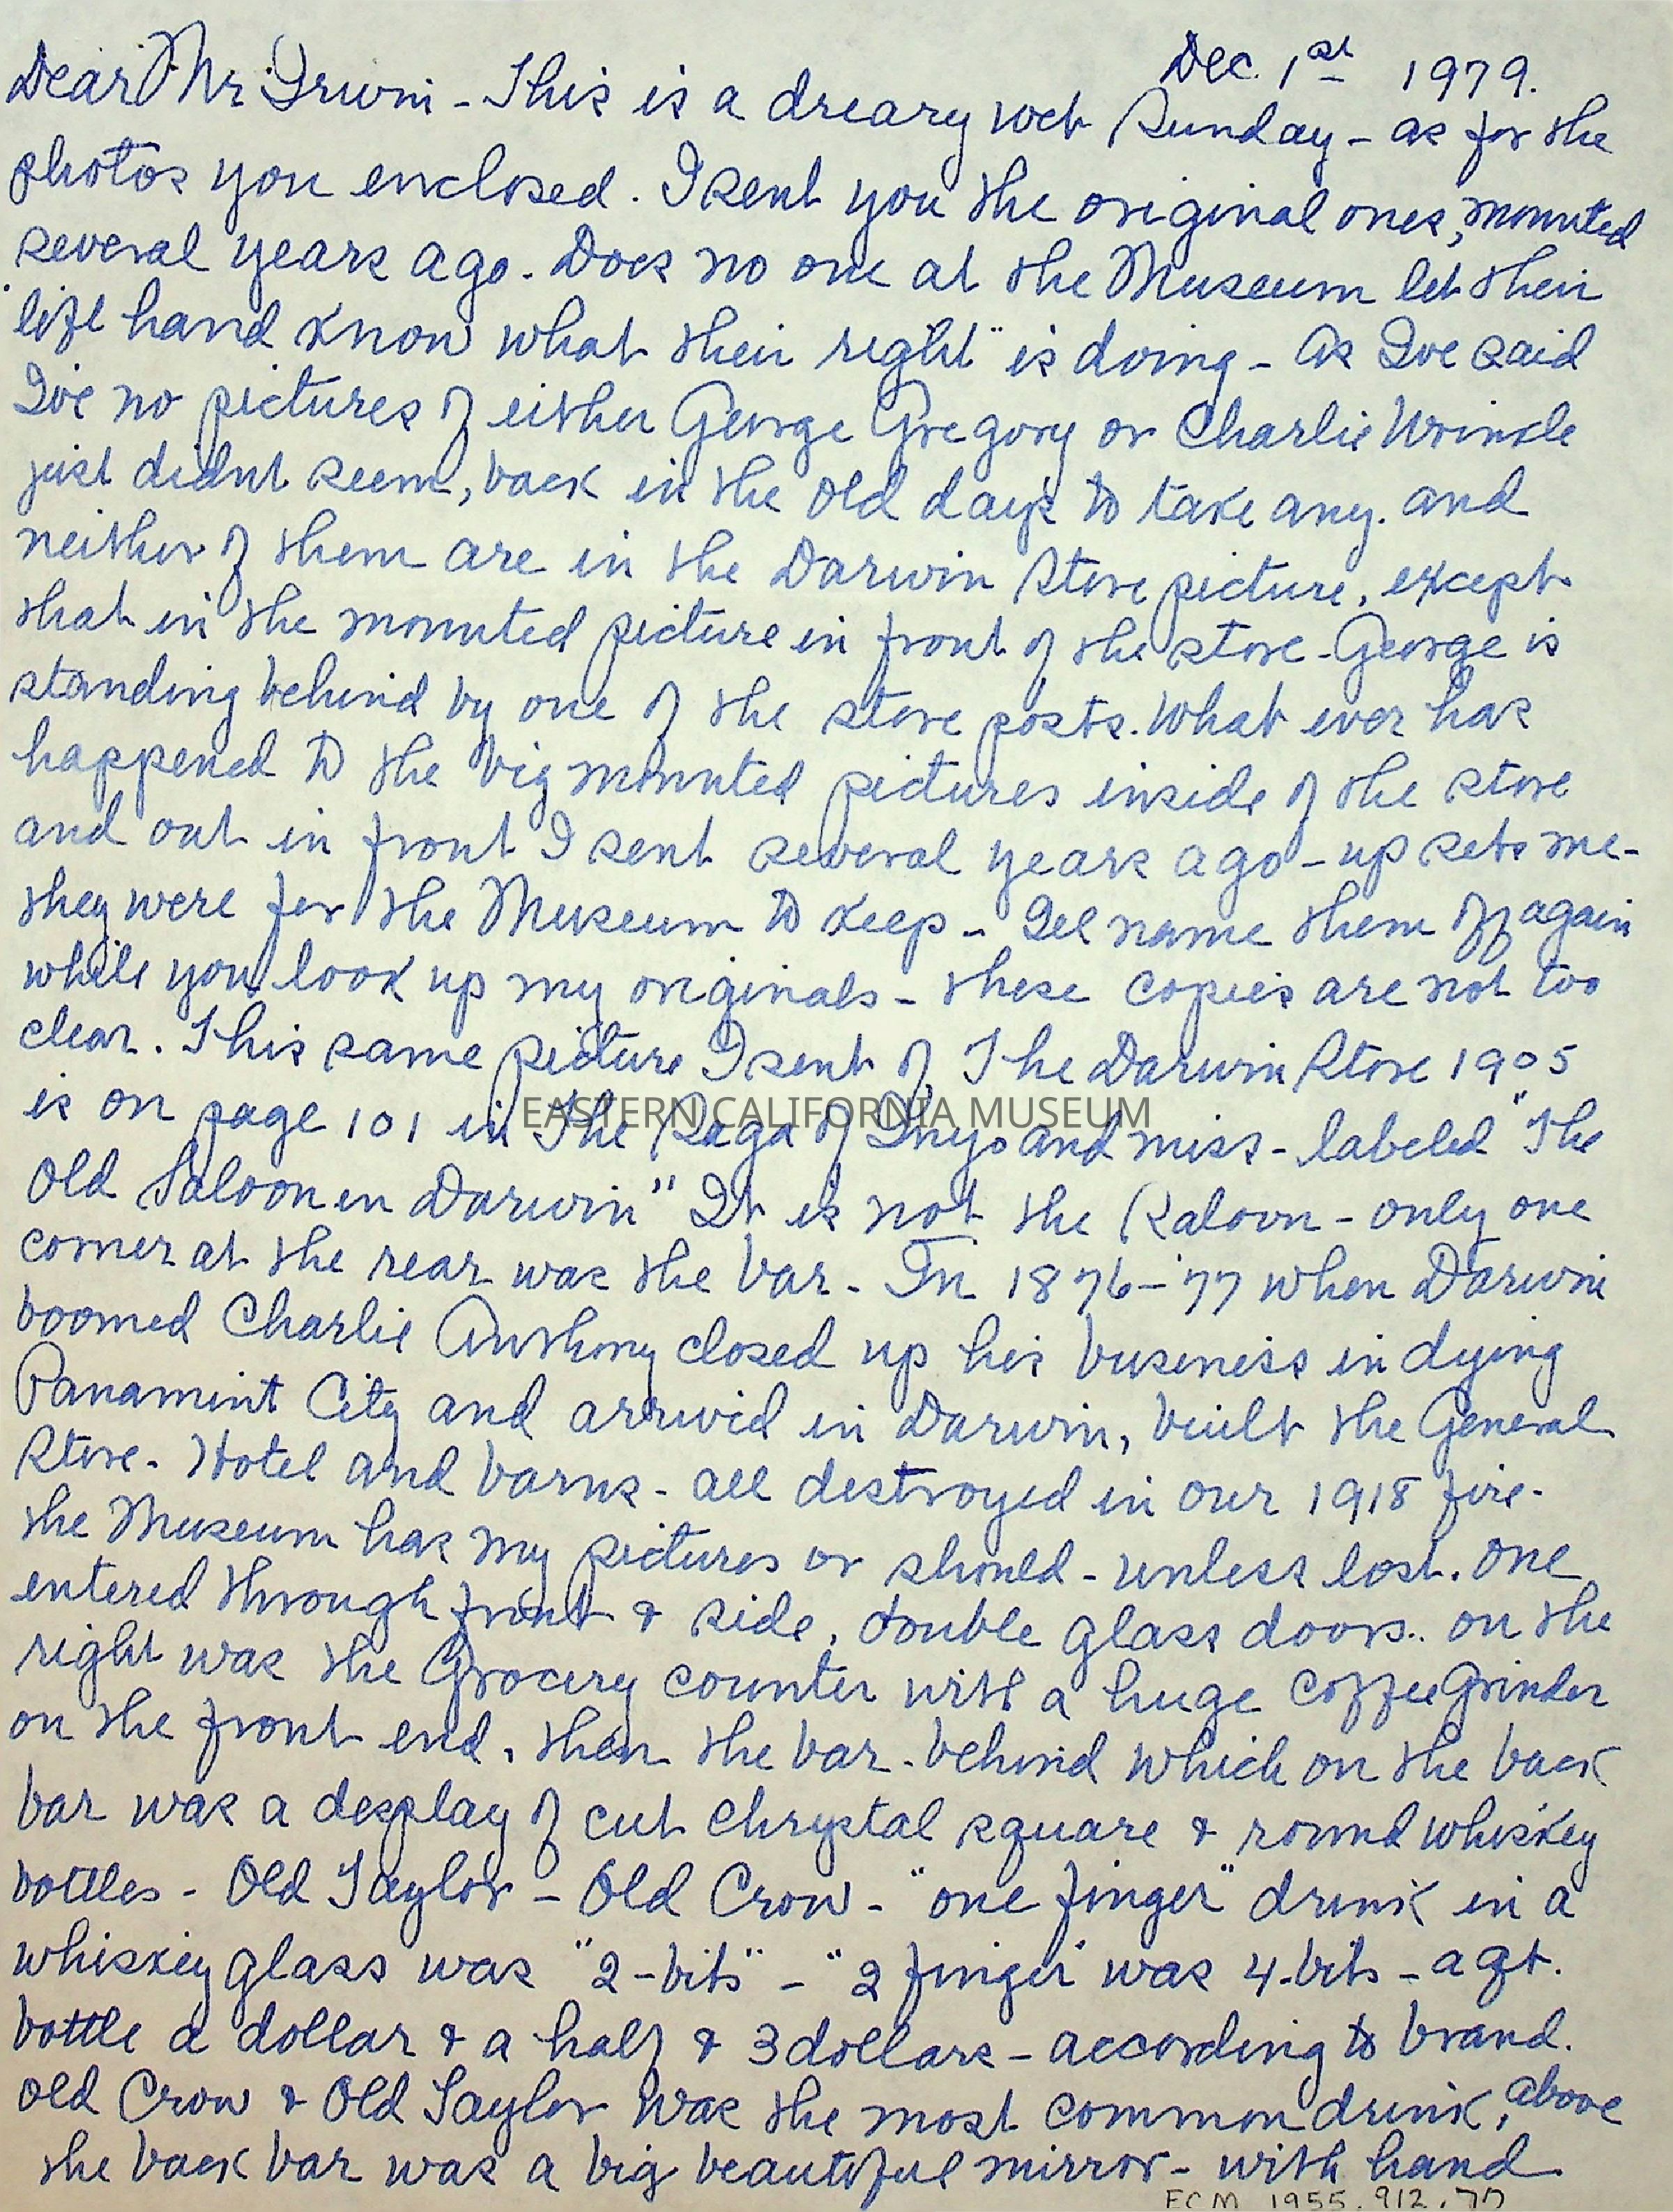 Dec. 1st 1979.
Dear Mr Irwin - This is a dreary wet Sunday - as for the
photos you enclosed. I sent you the original ones, mounted
several years ago. Does no one at the Museum let their
"left hand know what their right" is doing - As Ive said
Ive no pictures of either George Gregory or Charlie Wrinkle
just didnt seem, back in the old days to take any. and
neither of them are in the Darwin Store picture, except
that in the mounted picture in front of the store - George is
standing behind by one of the store posts. What ever has
happened to the big mounted pictures inside of the store
and out in front I sent several years ago - up sets me -
they were for the Museum to keep - Ill name them off again
while you look up my originals - these copies are not too
clear. This same picture I sent of The Darwin Store 1905
is on page 101 in The Saga of Inyo and miss-labeled "The
EASTERN CALIFORNIA MUSEUM
Old Saloon in Darwin" It is not the Saloon - only one
corner at the rear was the bar - In 1876-'77 when Darwin
boomed Charlie Anthony closed up his business in dying
Panamint City and arrived in Darwin, built the General
Store - Hotel and barns - all destroyed in our 1918 fire -
the Museum has my pictures or should - unless lost. One
entered through front & side, double glass doors.. on the
right was the Grocery counter with a huge coffee Grinder
on the front end, then the bar - behind which on the back
bar was a desplay of cut chrystal square & round whiskey
bottles - Old Taylor - Old Crow - "one finger" drink in a
whiskey glass was "2-bits" - "2 finger" was 4-bits - a qt.
bottle a dollar & a half & 3 dollars - according to brand.
Old Crow & Old Taylor was the most common drink, above
the back bar was a big beautiful mirror - with hand
ECM 1955.912.77